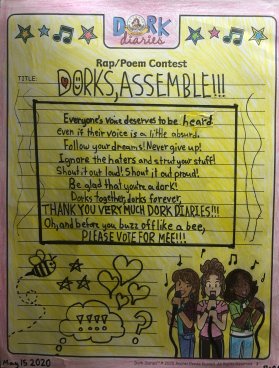 DORK
diaries
Rap/Poem Contest
TITLE: DORKS, ASSEMBLE!!!
Everyone's voice deserves to be heard
even if their voice is a little absurd.
Follow your dreams! Never give up!
Ignore the haters and strut your stuff!
Shout it out loud! Shout it out proud!
Be glad that you're a dork!
Dorks together, dorks forever,
THANK YOU VERY MUCH DORK DIARIES!!!
Oh, and before you buzz off like a bee,
PLEASE VOTE FOR MEE!!!
???!!!
May 15, 2020